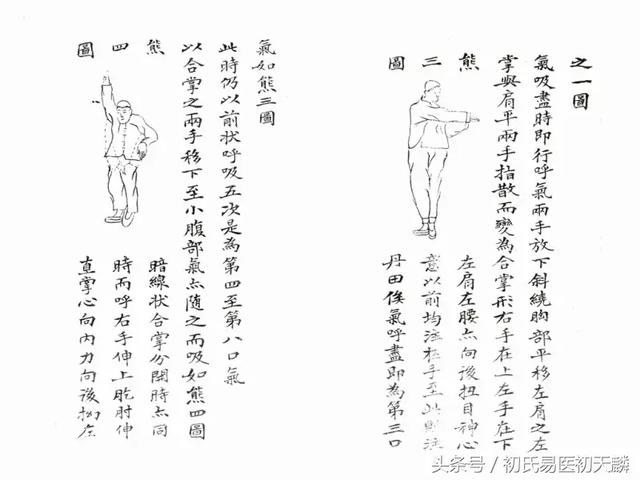 之一圖
氣吸盡時即行呼氣兩手放下斜繞胸部平移左肩之左
掌與肩平兩手指散而變為合掌形右手在上左手在下
熊三圖
左肩左腰点向後扭目神心
意以前均注於手至此則注
丹田俟氣呼盡即為第三口
氣如熊三圖
此時仍以前狀呼吸五次是為第四至第八口氣
以合掌之兩手移下至小腹部氣点随之而吸如熊四圖
熊四圖
暗線狀合掌分開時点同
時而呼右手伸上肐肘伸
直掌心向內力向後拗左
头条号／初氏易医初天麟